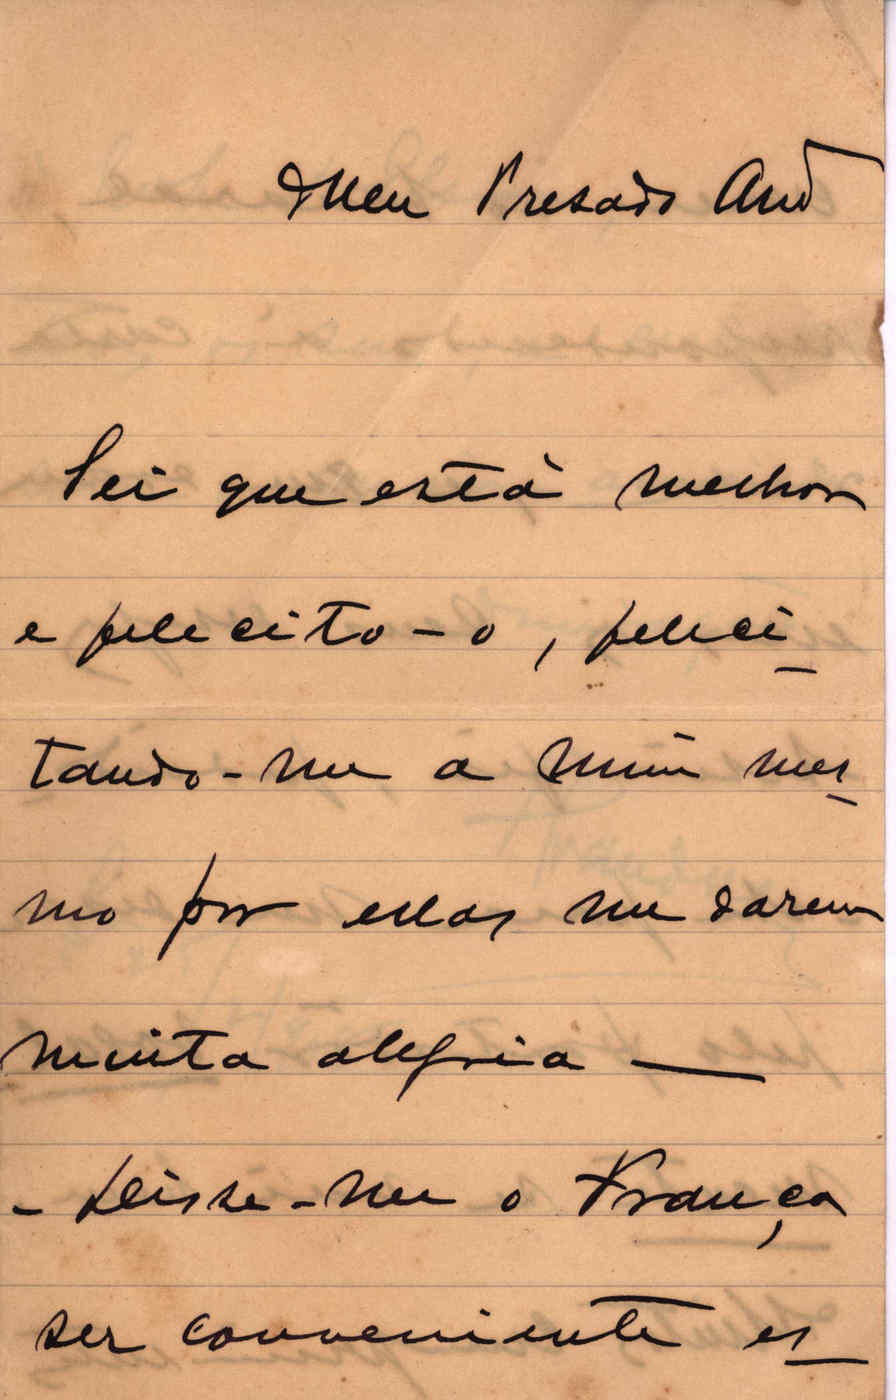 Meu Presado Amº
Sei que está melhor
e felecito-o, feleci
tando-me a mim mes
mo por ellas me darem
muita alegria —
- Disse-me o França
ser conveniente es